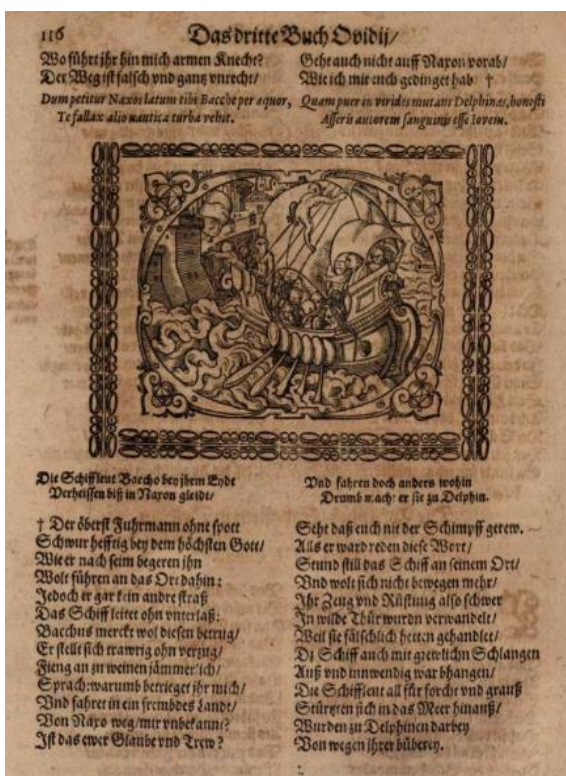 116 Das dritte Buch Ovidij/
Wo führt jhr hin mich armen Knecht?
Der Weg ist falsch vnd gantz vnrecht/
Geht auch nicht auff Naxon vorab/
Wie ich mit euch gedinget hab †
Dum petitur Naxos latum tibi Bacche per æquor,
Te fallax alio nautica turba vehit.
Quam puer in virides mutans Delphinas, honesti
Asseris autorem sanguinis esse Iovem.
Die Schiffleut Baccho bey jhrem Eyde
Verheissen biß in Naxon gleidt/
Vnd fahren doch anders wohin
Drumb macht er sie zu Delphin.
† Der öberst Fuhrmann ohne spott
Schwur hefftig bey dem höchsten Gott/
Wie er nach seim begeren jhn
Wolt führen an das Ort dahin:
Jedoch er gar kein andre straß
Das Schiff leitet ohn vnterlaß:
Bacchus merckt wol diesen betrug/
Er stellt sich trawrig ohn verzug/
Fieng an zu weinen jämmerlich/
Sprach: warumb betrieget jhr mich/
Vnd fahret in ein frembdes Landt/
Von Naxo weg/ mir vnbekannt?
Ist das ewer Glaube vnd Trew?
Seht daß euch nit der Schimpff gerew.
Alls er ward reden diese Wort/
Stund still das Schiff an seinem Ort/
Vnd wolt sich nicht bewegen mehr/
Ihr Zeug vnd Rüstung also schwer
In wilde Thür wurdn verwandelt/
Weil sie fälschlich hetten gehandlet/
Dz Schiff auch mit grewlichn Schlangen
Auß vnd innwendig war bhangen/
Die Schiffleut all für forcht vnd grauß
Stürtzten sich in das Meer hinauß/
Wurden zu Delphinen darbey
Von wegen jhrer büberey.